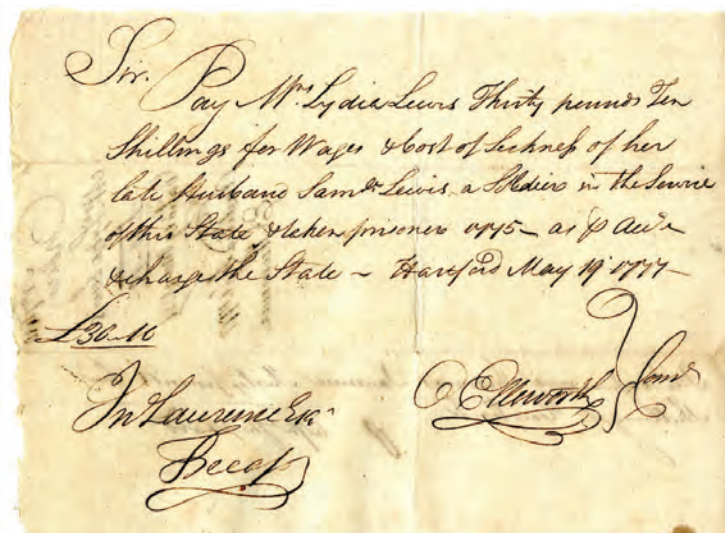 Sir.
Pay Mrs. Lydia Lewis Thirty pounds Ten
Shillings for Wages & Cost of Sickness of her
late Husband Saml. Lewis a Soldier in the Service
of this State & taken prisoner 1775 - as
& charge the State - Hartford May 19 1777 -
£30-10
O Ellsworth
Jn Lawrence Esqr
Treas